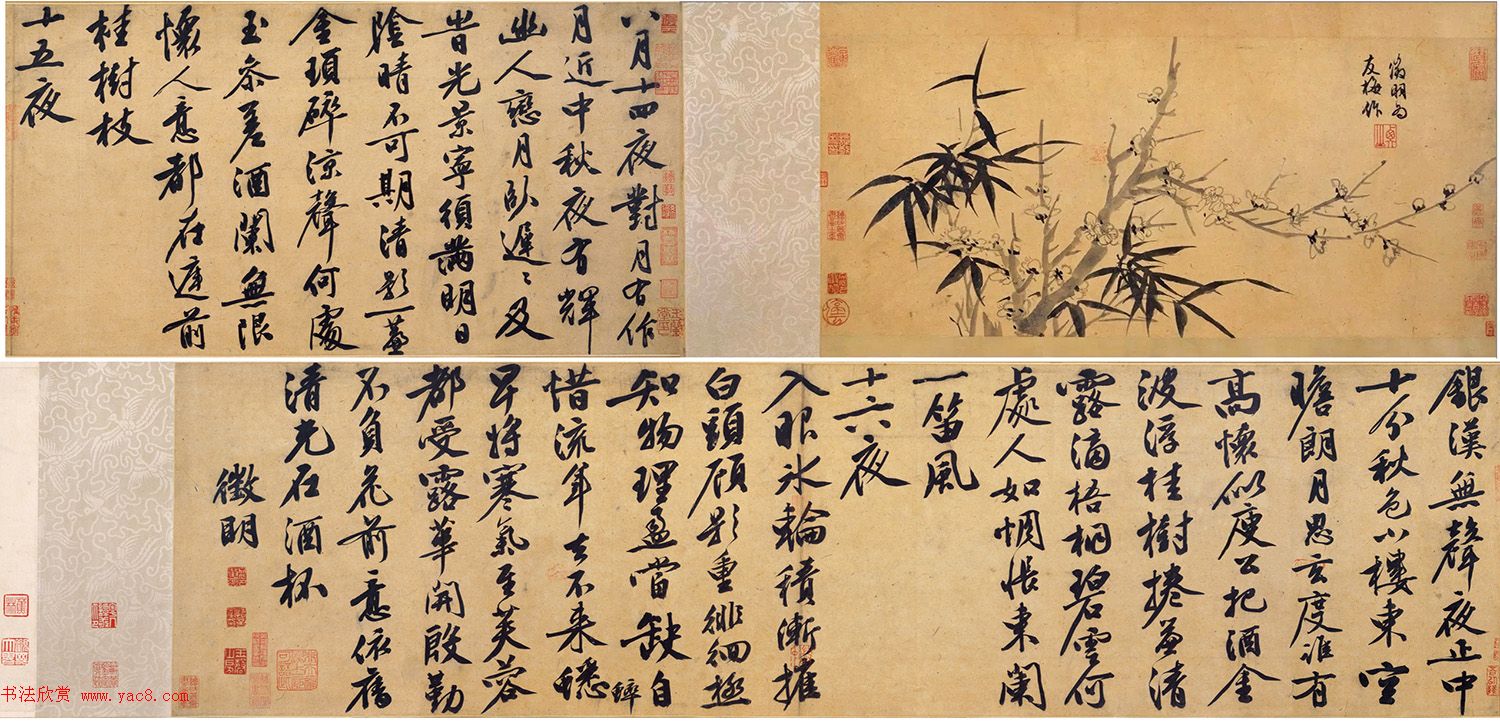 徵明為
友梅作
八月十四夜對月有作
月近中秋夜有輝
幽人戀月臥遲〻及
旹光景寧須滿明日
陰晴不可期清影一簾
金瑣碎涼聲何處
玉參差酒闌無限
懷人意都在庭前
桂樹枝
十五夜
銀漢無聲夜正中
十分秋色小樓東空
瞻朗月思玄度誰有
高懷似庾公把酒金
波浮桂樹捲簾清
露滴梧桐碧雲何
處人如惆悵東闌
一笛風
十六夜
入眼冰輪積漸摧
白頭顧影重徘徊極
知物理盈當缺自
惜流年去不來蟋蟀
早將寒氣至芙蓉
都受露華開殷勤
不負花前意依舊
清光在酒杯
徵明
书法欣赏 www.yac8.com